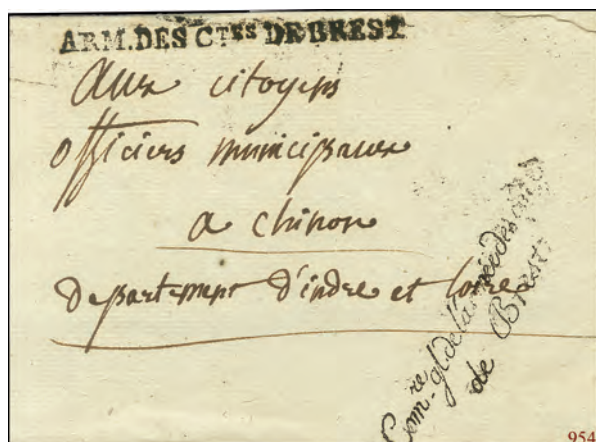 ARM. DES CTES DE BREST
aux citoyens
officiers municipaux
a chinon
departement d'indre et loire
Comre gl. de l'armée des
de Brest
954